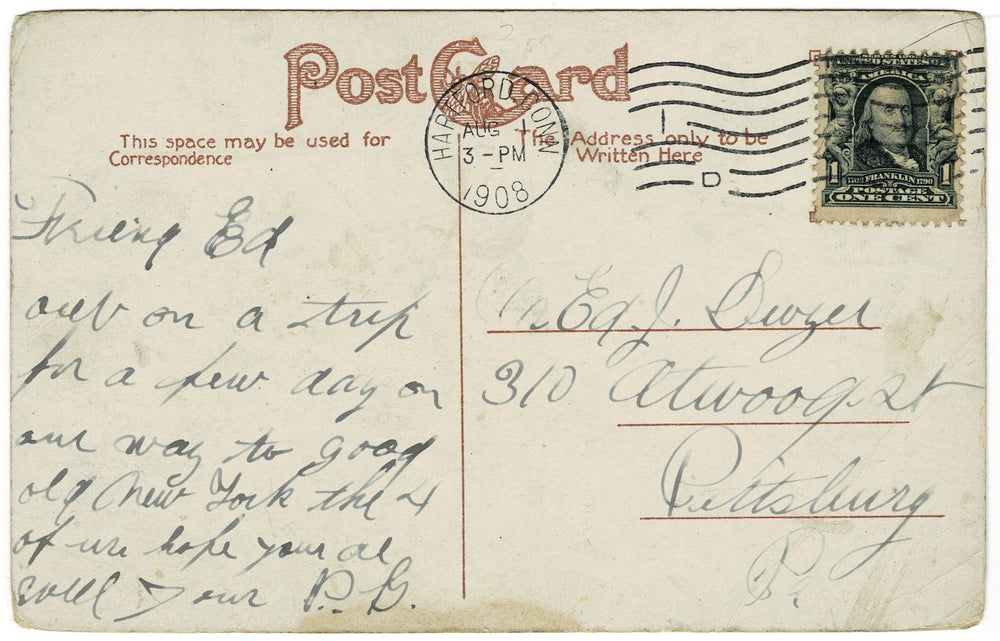 Post Card
This space may be used for
Correspondence
The Address only to be
Written Here
HARTFORD CONN
AUG 1
3 - PM
1908
1
D
UNITED STATES OF
AMERICA
1 1
1706 FRANKLIN 1790
POSTAGE
ONE CENT
Friend Ed
out on a trip
for a few day on
our way to good
old New York the 4
of us hope your al
well your P. G.
Mr Ed J. Dwyer
310 Atwood St
Pittsburg
Pa